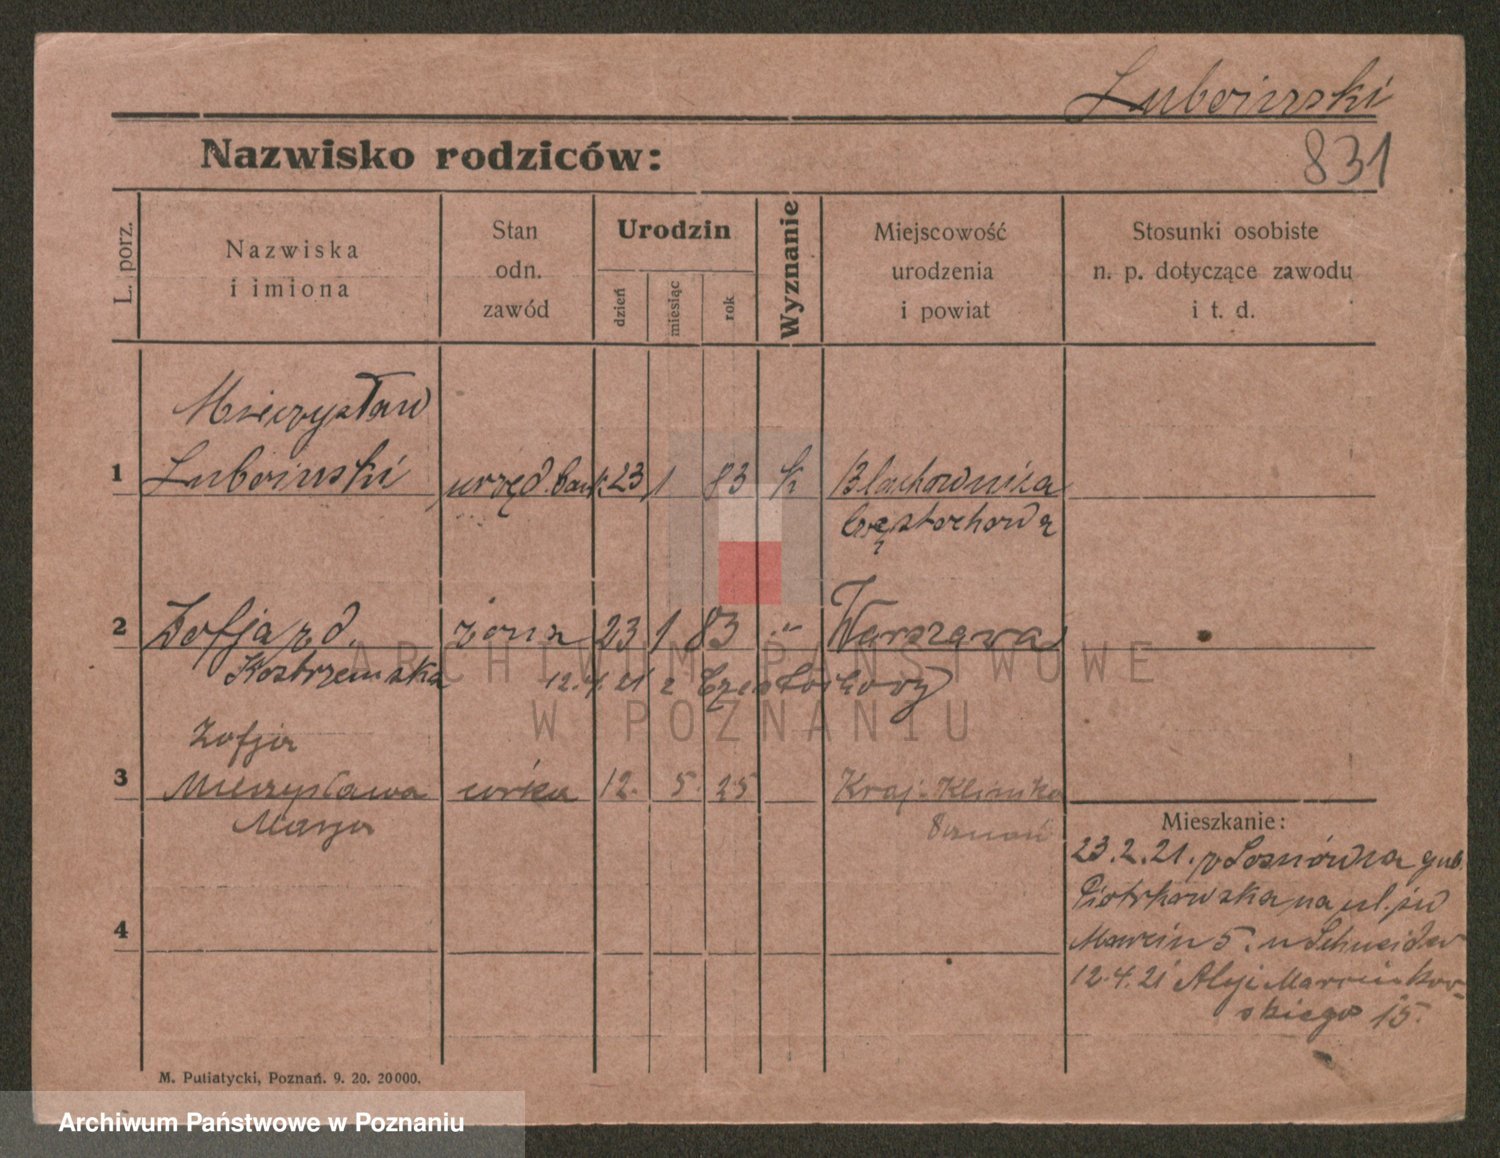 Luboiński
831
Nazwisko rodziców:
L. porz.
Nazwiska
i imiona
Stan
odn.
zawód
Urodzin
dzień
miesiąc
rok
Wyznanie
Miejscowość
urodzenia
i powiat
Stosunki osobiste
n. p. dotyczące zawodu
i t. d.
Mieczysław
1 Luboiński urzęd. bank. 23 1 83 k Blachownica
Częstochowa
2 Zofja z d. żona 23 1 83 „ Warszawa
Kostrzemska 12.4.21 z Częstochowy
Zofja
3 Mieczysława córka 12. 5. 25 Kraj. Klinika
Marja Poznań
Mieszkanie:
23.2.21. z Sosnówka gub.
Piotrkowska na ul. św
4 Marcin 5. u Schneider
12.4.21 Aleji Marcinkow-
skiego 15.
M. Putiatycki, Poznań. 9. 20. 20000.
ARCHIWUM PAŃSTWOWE
W POZNANIU
Archiwum Państwowe w Poznaniu